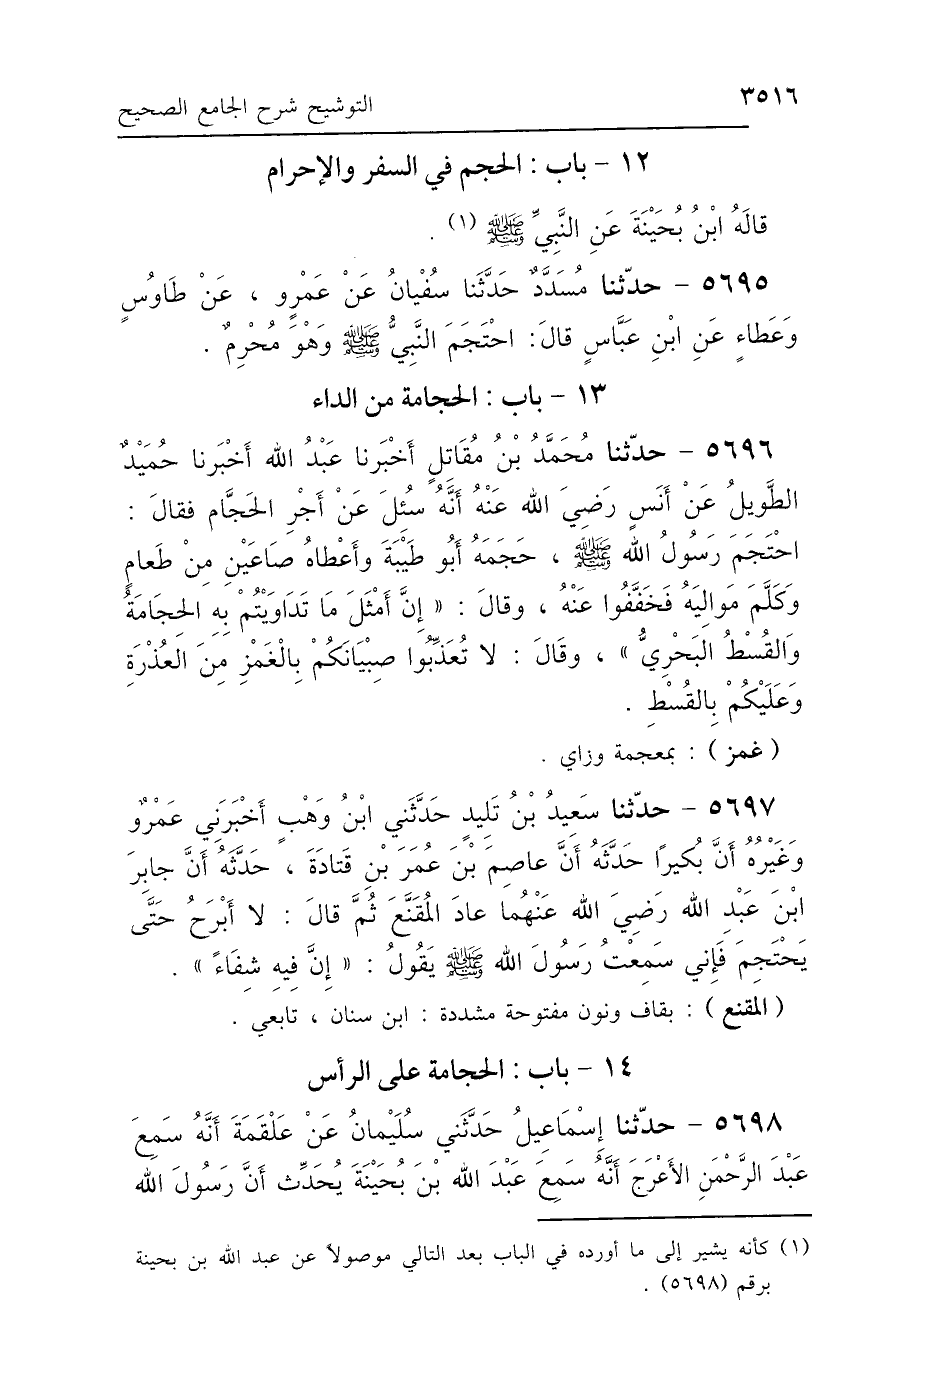 ٣٥١٦
التوشيح شرح الجامع الصحيح
١٢ - باب : الحجم في السفر والإحرام
قالَهُ ابْنُ بُحَيْنَةَ عَنِ النَّبيِّ ﷺ (١) .
٥٦٩٥ - حدّثنا مُسَدَّدٌ حَدَّثَنا سفْيانُ عَنْ عَمْرٍو ، عَنْ طَاوُسٍ
وَعَطاءٍ عَنِ ابْنِ عبَّاسٍ قالَ: احْتَجَمَ النَّبيُّ ﷺ وَهْوَ مُحْرِمٌ .
١٣ - باب : الحجامة من الداء
٥٦٩٦ - حدّثنا مُحَمَّدُ بْنُ مُقاتِلٍ أخْبَرنا عَبْدُ الله أخْبَرنا حُمَيْدٌ
الطَّوِيلُ عَنْ أنَسٍ رَضِيَ الله عَنْهُ أنَّهُ سُئِلَ عَنْ أجْرِ الحَجَّامِ فقالَ :
احْتَجَمَ رَسُولُ الله ﷺ ، حَجَمَهُ أبُو طَيْبَةَ وأعْطاهُ صَاعَيْنِ مِنْ طَعامٍ
وَكَلَّمَ مَوالِيَهُ فَخَفَّفُوا عَنْهُ ، وقالَ : « إنَّ أمْثَلَ مَا تَدَاوَيْتُمْ بِهِ الحِجَامَةُ
وَالقُسْطُ البَحْرِيُّ » ، وقَالَ : لا تُعَذِّبُوا صِبْيَانَكُمْ بِالْغَمْزِ مِنَ العُذْرَةِ
وَعَلَيْكُمْ بِالقُسْطِ .
( غمز ) : بمعجمة وزاي .
٥٦٩٧ - حدّثنا سَعِيدُ بْنُ تَلِيدٍ حَدَّثَني ابْنُ وَهْبٍ أخْبَرَنِي عَمْرٌو
وَغَيْرُهُ أنَّ بُكَيرًا حَدَّثَهُ أنَّ عاصِمَ بْنَ عُمَرَ بْنِ قَتادَةَ ، حَدَّثَهُ أنَّ جابِرَ
ابْنَ عَبْدِ الله رَضِيَ الله عَنْهُما عادَ المُقَنَّعَ ثُمَّ قالَ : لا أبْرَحُ حَتَّى
يَحْتَجِمَ فَإنِي سَمِعْتُ رَسُولَ الله ﷺ يَقُولُ : « إنَّ فِيهِ شِفَاءً » .
( المقنع ) : بقاف ونون مفتوحة مشددة : ابن سنان ، تابعي .
١٤ - باب : الحجامة على الرأس
٥٦٩٨ - حدّثنا إسْمَاعِيلُ حَدَّثَني سُلَيْمانُ عَنْ عَلْقَمَةَ أنَّهُ سَمِعَ
عَبْدَ الرَّحْمَنِ الأعْرَجَ أنَّهُ سَمِعَ عَبْدَ الله بْنَ بُحَيْنَةَ يُحَدِّث أنَّ رَسُولَ الله
(١) كأنه يشير إلى ما أورده في الباب بعد التالي موصولاً عن عبد الله بن بحينة
برقم (٥٦٩٨) .